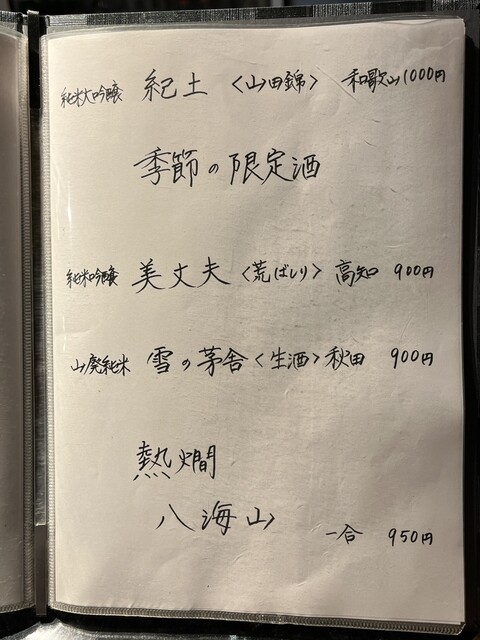 純米大吟醸 紀土 〈山田錦〉 和歌山 1000円
季節の限定酒
純米吟醸 美丈夫〈荒ばしり〉高知 900円
山廃純米 雪の茅舎〈生酒〉秋田 900円
熱燗
八海山 一合 950円